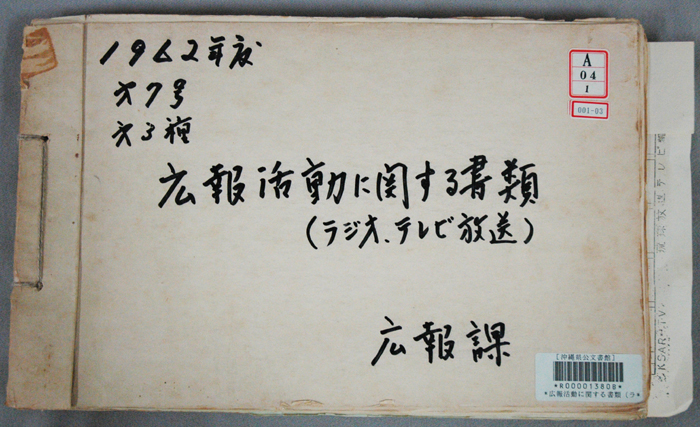 1962年度
才7号
才3種
広報活動に関する書類
(ラジオ、テレビ放送)
広報課
A
04
1
001-03
[沖縄県公文書館]
*R000013808*
*広報活動に関する書類(ラ*